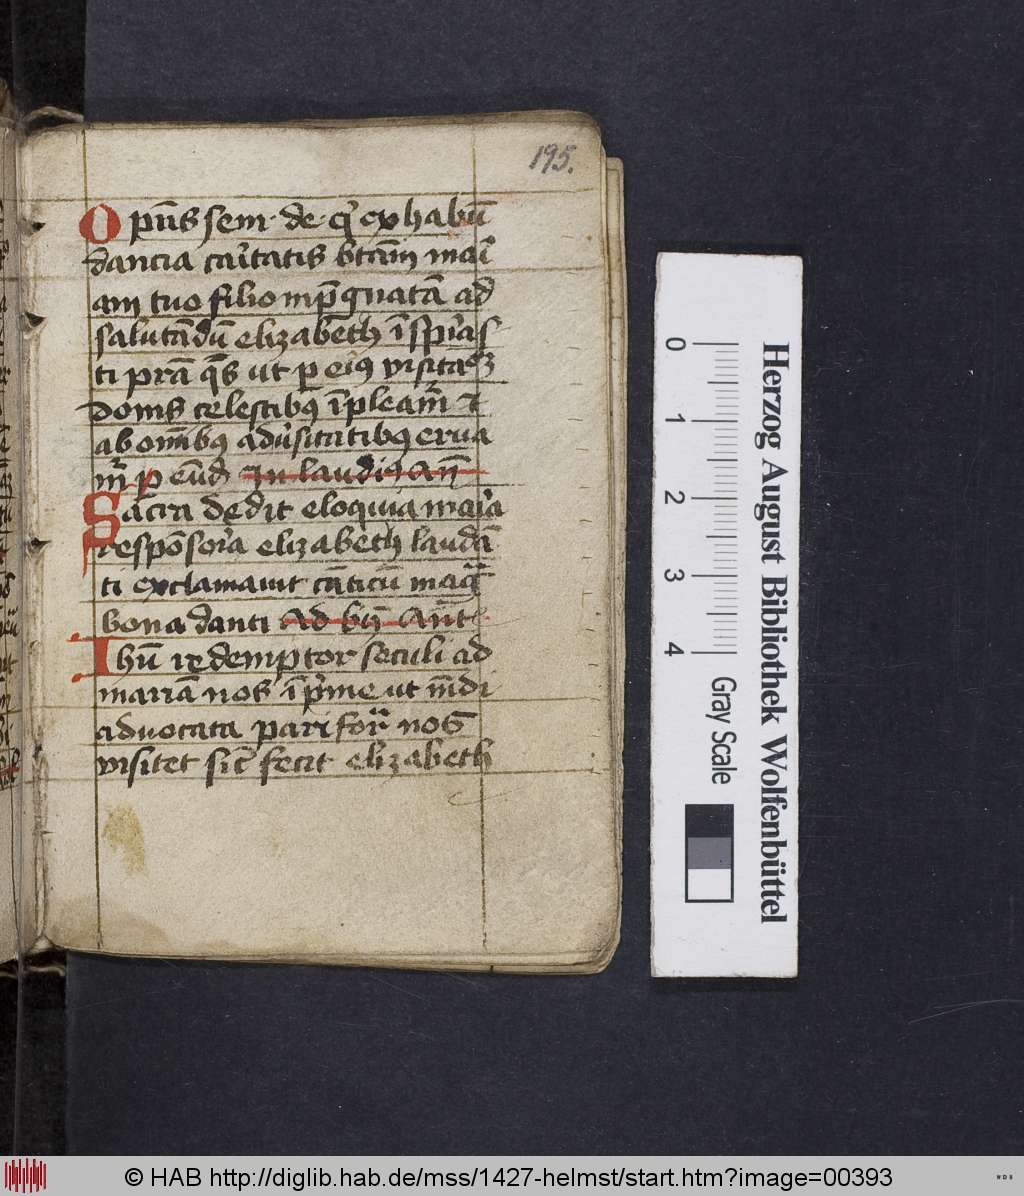 195.
O pñs sem de qͥ ex habū
dancia caͥtatis btām maͥ
am tuo filio inp̄gnatā ad
salutādū elizabeth īspiͥas
ti p̄rā q̄s ut ꝑ eiꝰ visitaꝫ
donis celestibꝰ īpleamͬ ⁊
ab omībꝰ adūsitatibꝰ erua
mͬ ꝑ eūd In laudiꝰ añ
Sacra dedit eloquia maͥa
responsoͥa elizabeth laudā
ti exclamauit cāticū magͣ
bona danti Ad bn̄ Añt
Ihū redemptor seculi ad
mariā nos īpͥme ut mūdi
aduocata pari forͣ nos
visitet sic̄ fecit elizabeth
0 1 2 3 4
Gray Scale
Herzog August Bibliothek Wolfenbüttel
© HAB http://diglib.hab.de/mss/1427-helmst/start.htm?image=00393